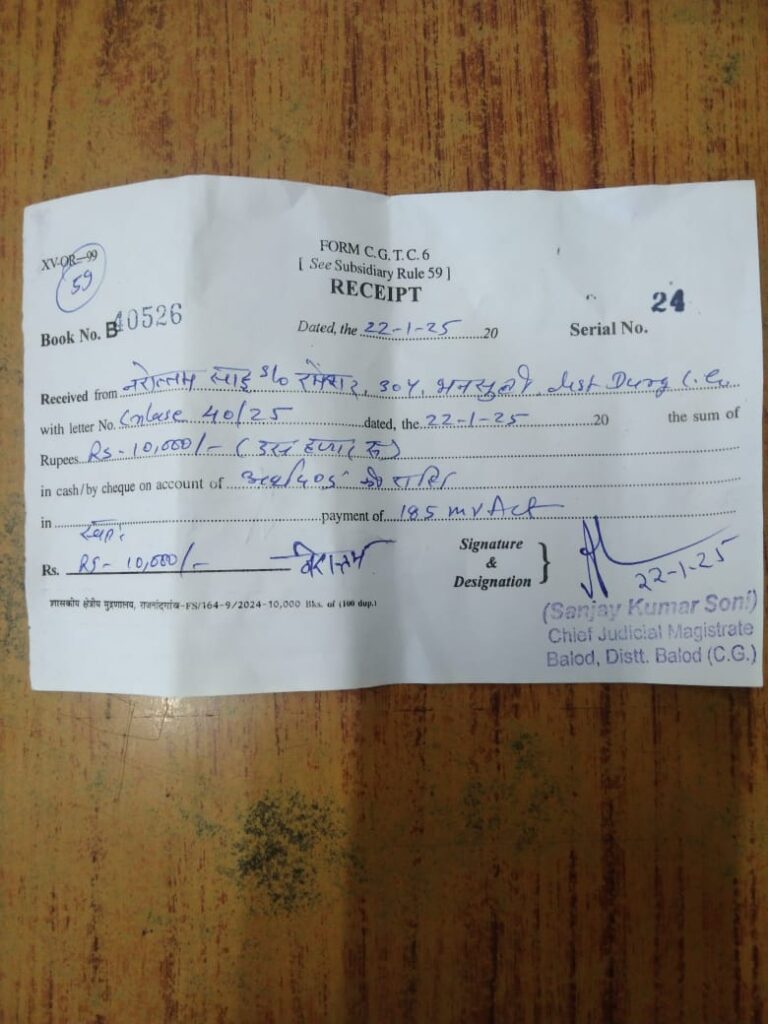 XV-OR-99
59
FORM C.G.T.C. 6
[ See Subsidiary Rule 59 ]
RECEIPT
Book No. B 40526
Dated, the 22-1-25 20
Serial No. 24
Received from नरोत्तम साहू S/o उम्र 304, Dist Durg C.G.
with letter No. 40/25 dated, the 22-1-25 20 the sum of
Rupees Rs - 10,000/- (दस हजार रू)
in cash/by cheque on account of अर्थदण्ड की राशि
in payment of 185 mv Act
Rs. Rs - 10,000/-
Signature
&
Designation
22-1-25
(Sanjay Kumar Soni)
Chief Judicial Magistrate
Balod, Distt. Balod (C.G.)
शासकीय क्षेत्रीय मुद्रणालय, राजनांदगांव-FS/164-9/2024-10,000 Bks. of (100 dup.)